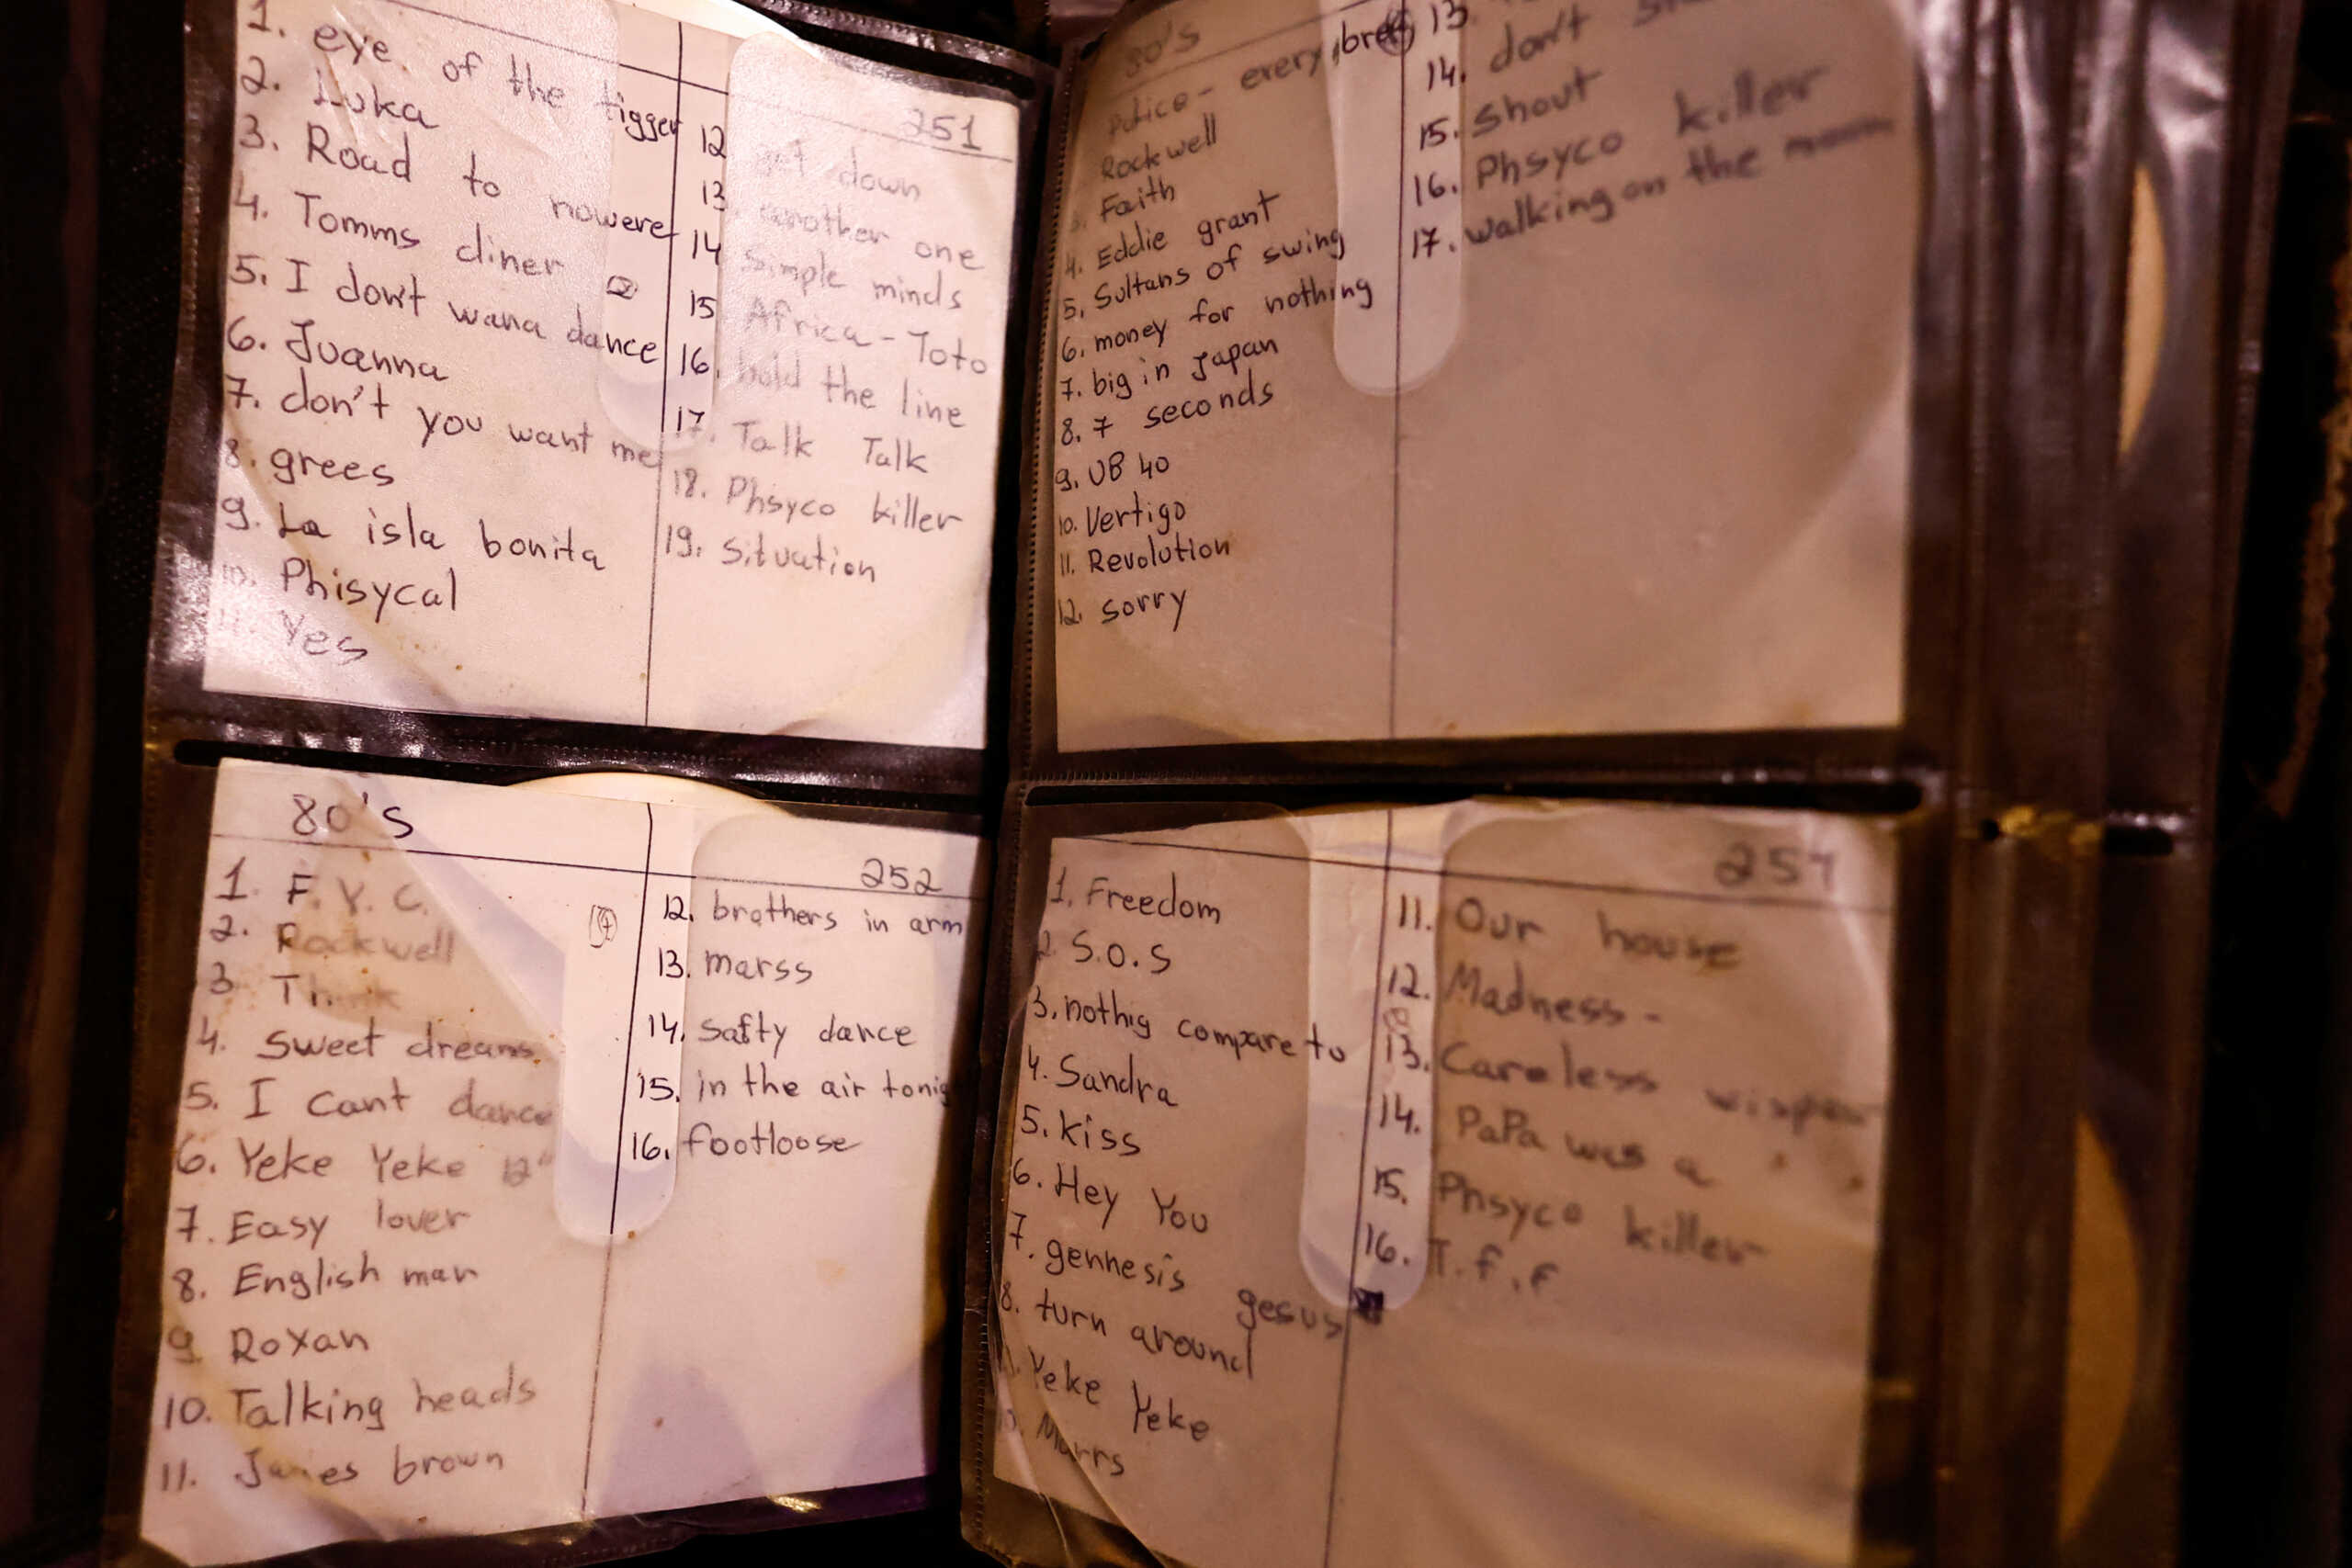 251
1. eye of the tigger
2. Luka
3. Road to nowere
4. Tomms diner
5. I don't wana dance
6. Juanna
7. don't you want me
8. grees
9. La isla bonita
10. Phisycal
11. Yes
12 get down
13 another one
14 Simple minds
15 Africa - Toto
16. hold the line
17. Talk Talk
18. Phsyco killer
19. Situation
80's
Police - every bre
Rockwell
3. Faith
4. Eddie grant
5. Sultans of swing
6. money for nothing
7. big in Japan
8. 7 seconds
9. UB 40
10. Vertigo
11. Revolution
12. sorry
13.
14. don't
15. Shout
16. Phsyco killer
17. walking on the moon
80's
252
1. F. Y. C.
2. Rockwell
3 Think
4. Sweet dreams
5. I Cant dance
6. Yeke Yeke 12"
7. Easy lover
8. English man
9 Roxan
10. Talking heads
11. James brown
12. brothers in arm
13. marss
14. Safty dance
15. in the air tonig
16. footloose
257
1. Freedom
2 S.O.S
3. nothig compare to
4. Sandra
5. kiss
6. Hey You
7. gennesis gesus
8. turn around
Yeke Yeke
10. Marrs
11. Our house
12. Madness -
13. Careless wisper
14. PaPa was a
15. Phsyco killer
16. T.f.f